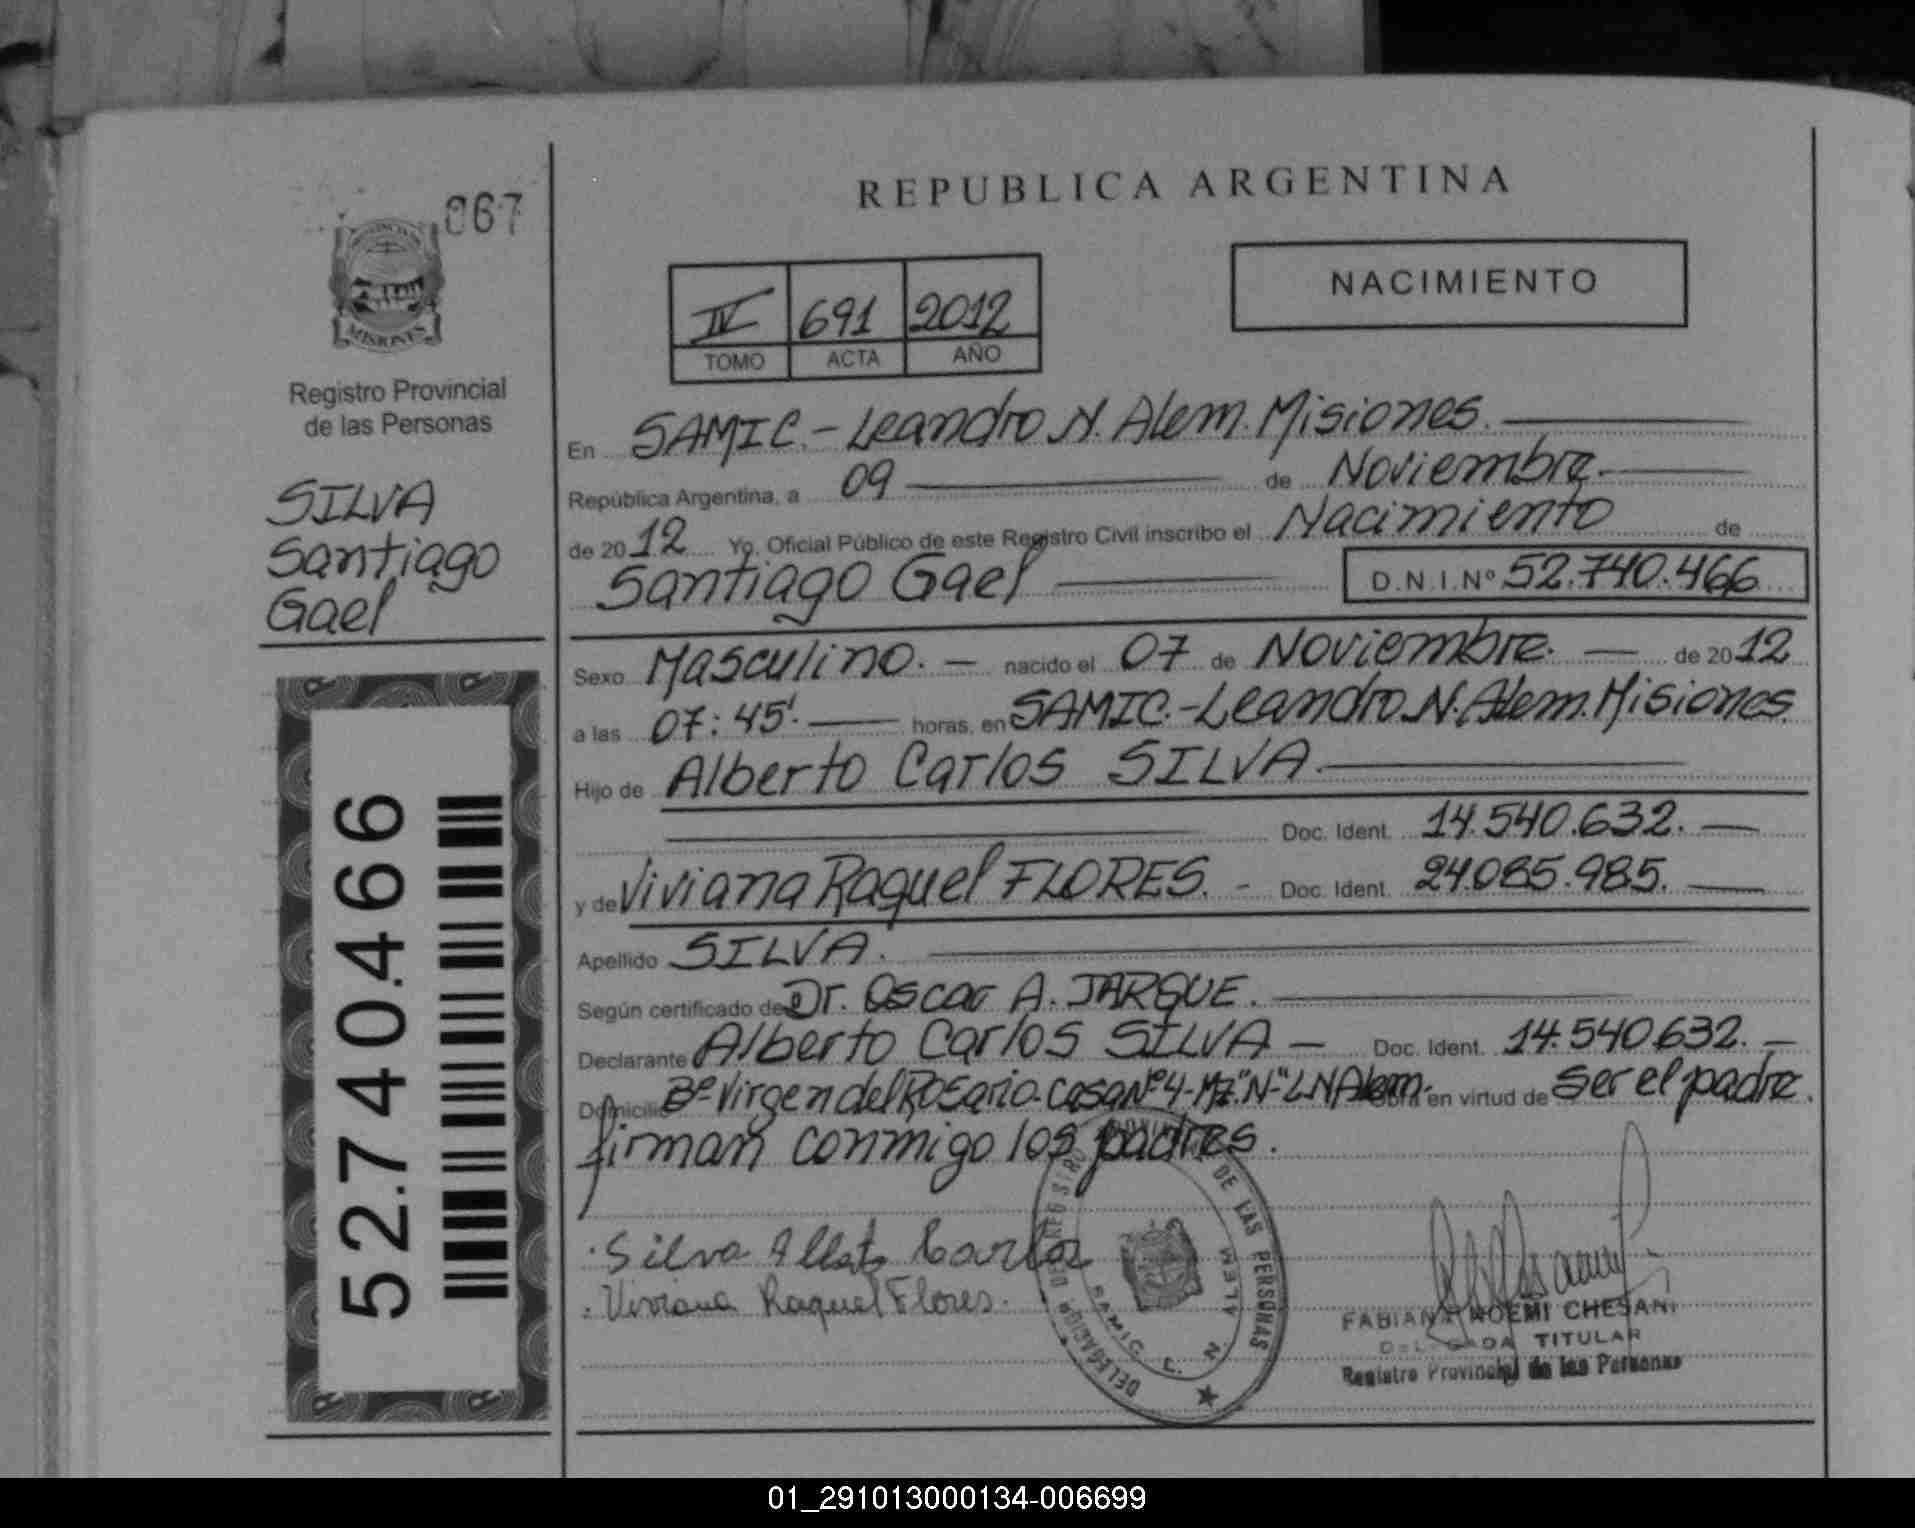 067
MISIONES
Registro Provincial
de las Personas
SILVA
Santiago
Gael
52.740.466
REPUBLICA ARGENTINA
NACIMIENTO
IV 691 2012
TOMO ACTA AÑO
En SAMIC.- Leandro N. Alem. Misiones.
República Argentina, a 09 de Noviembre.
de 2012 Yo, Oficial Público de este Registro Civil inscribo el Nacimiento de
Santiago Gael D.N.I.Nº 52.740.466
Sexo Masculino. - nacido el 07 de Noviembre. - de 2012
a las 07:45'. horas, en SAMIC.-Leandro N. Alem. Misiones.
Hijo de Alberto Carlos SILVA.
Doc. Ident. 14.540.632.
y de Viviana Raquel FLORES. - Doc. Ident. 24.085.985.
Apellido SILVA.
Según certificado de Dr. Oscar A. JARQUE.
Declarante Alberto Carlos SILVA - Doc. Ident. 14.540.632. -
Domicilio Bº Virgen del Rosario - Casa Nº 4 - Mz. "N" - L.N. Alem. Obra en virtud de ser el padre.
firman conmigo los padres.
Silva Alberto Carlos
Viviana Raquel Flores.
DELEGACION DE REGISTRO DE LAS PERSONAS
SAMIC L. N. ALEM
FABIANA NOEMI CHESANI
DELEGADA TITULAR
Registro Provincial de las Personas
01_291013000134-006699